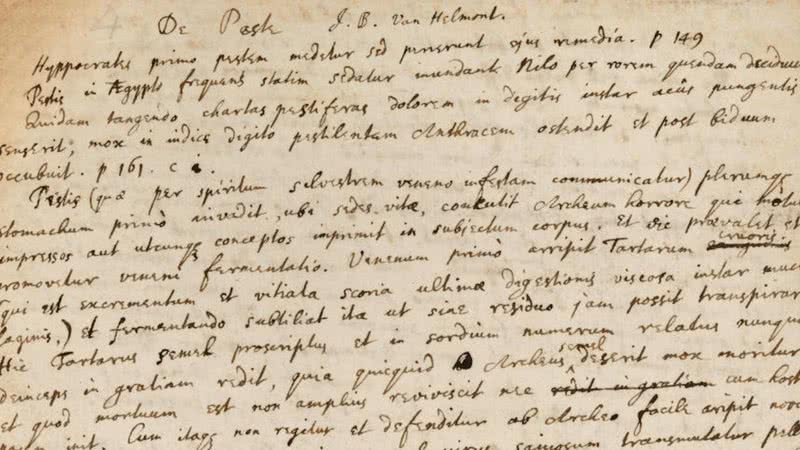 De Peste J. B. Van Helmont.
Hyppocrates primo pestem medetur sed perierunt ejus remedia. p 149
Pestis in Ægypto frequens statim sedatur inundante Nilo per rorem quendam deciduum
Quidam tangendo chartas pestiferas dolorem in degitis instar acûs pungentis
senserit, mox in indice digito pestilentem Anthracem ostendit et post biduum
occubuit. p 161. c
Pestis (quæ per spiritum silvestrem veneno infestam communicatur) plerumqȝ
stomachum primò invedit, ubi sedes vitæ, concutit Archeum horrore qui motus
impressos aut utcunqȝ conceptos imprimit in subjectum corpus. Et sic prævalet et
promovetur veneni fermentatio. Venenum primò arripit Tartarum sanguinis cruoris
(qui est excrementum et vitiata scoria ultimæ digestionis viscosa instar muci
laginis,) et fermentando subtiliat ita ut sine residuo jam possit transpirar
Hic Tartarus semel proscriptus et in sordium numerum relatus nunqua
deinceps in gratiam redit, quia quicquid Archeus semel deserit mox moritur
et quod mortuum est non amplius reviviscit nec redit in gratiam cum host
pacem init. Cum itaqȝ non regitur et defenditur ab Archeo facile aripit nov
saniosum transmutatur pell